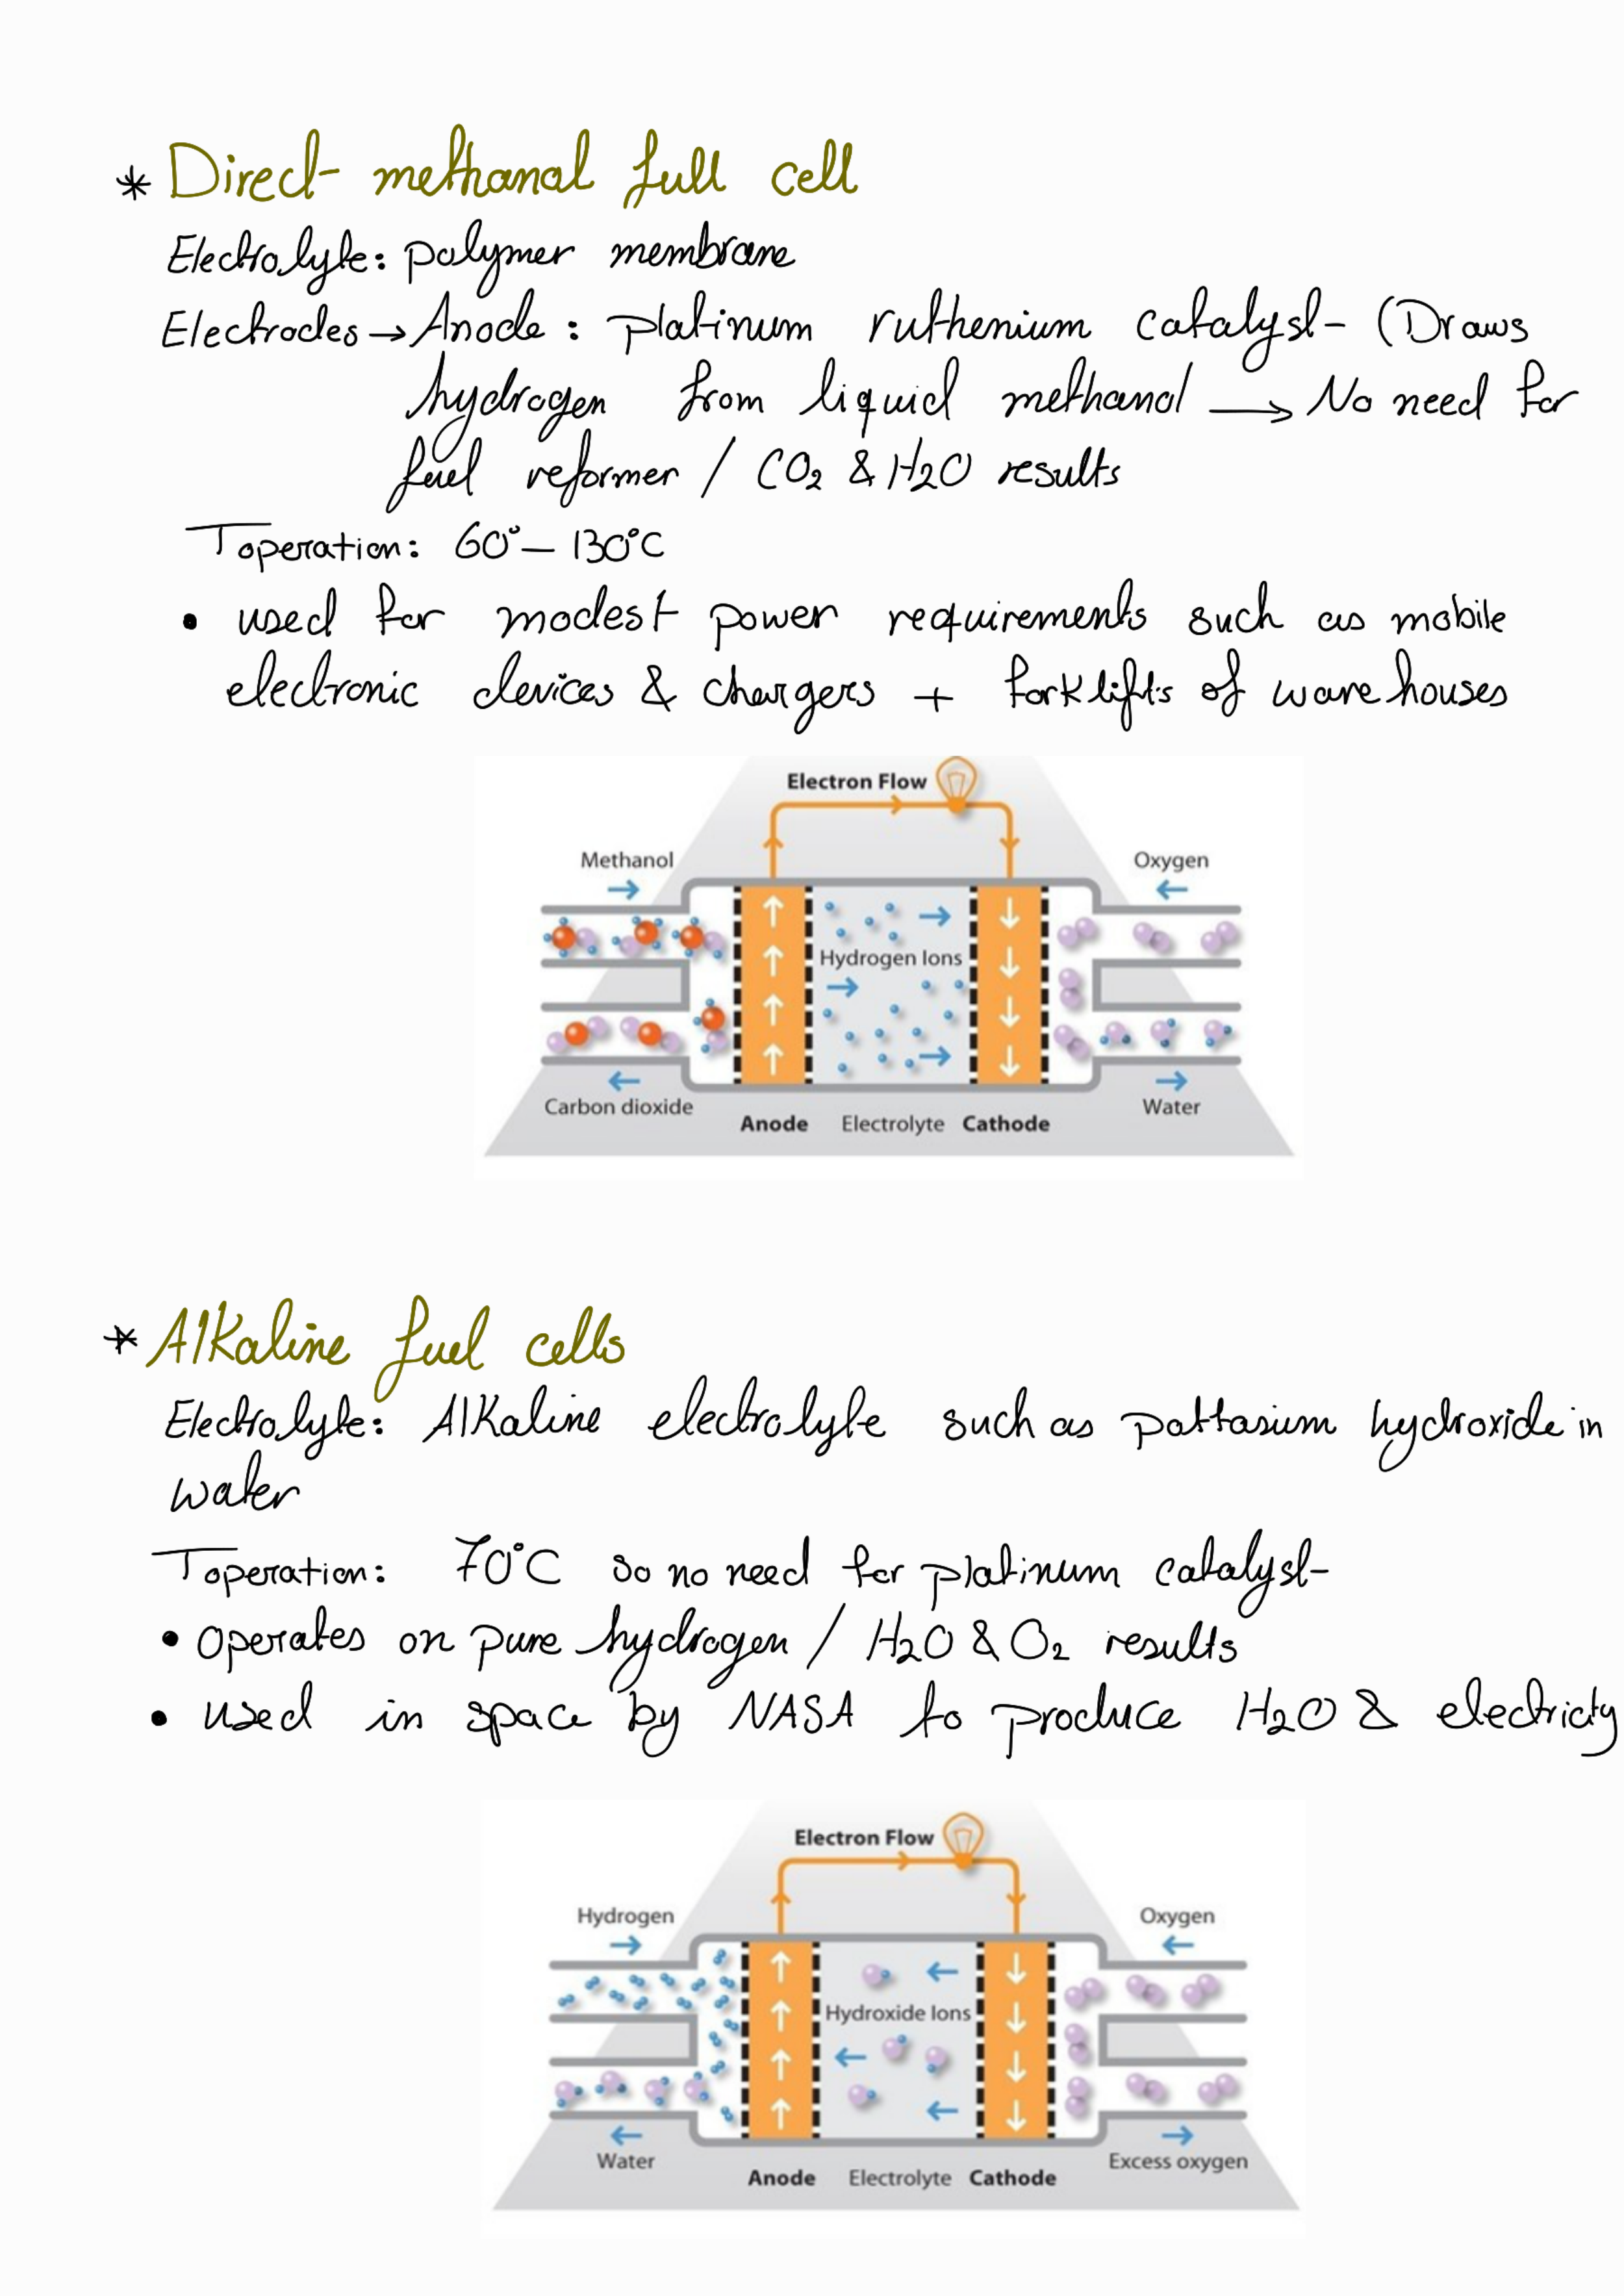 * Direct methanol full cell
Electrolyte: polymer membrane
Electrodes → Anode : platinum ruthenium catalyst (Draws
hydrogen from liquid methanol → No need for
fuel reformer / CO2 & H2O results
Toperation: 60° – 130°C
• used for modest power requirements such as mobile
electronic devices & chargers + forklifts of warehouses
Electron Flow
Methanol
Oxygen
Hydrogen Ions
Carbon dioxide
Water
Anode Electrolyte Cathode
* Alkaline fuel cells
Electrolyte: Alkaline electrolyte such as pottasium hydroxide in
water
Toperation: 70°C so no need for platinum catalyst
• operates on pure hydrogen / H2O & O2 results
• used in space by NASA to produce H2O & electricity
Electron Flow
Hydrogen
Oxygen
Hydroxide Ions
Water
Excess oxygen
Anode Electrolyte Cathode